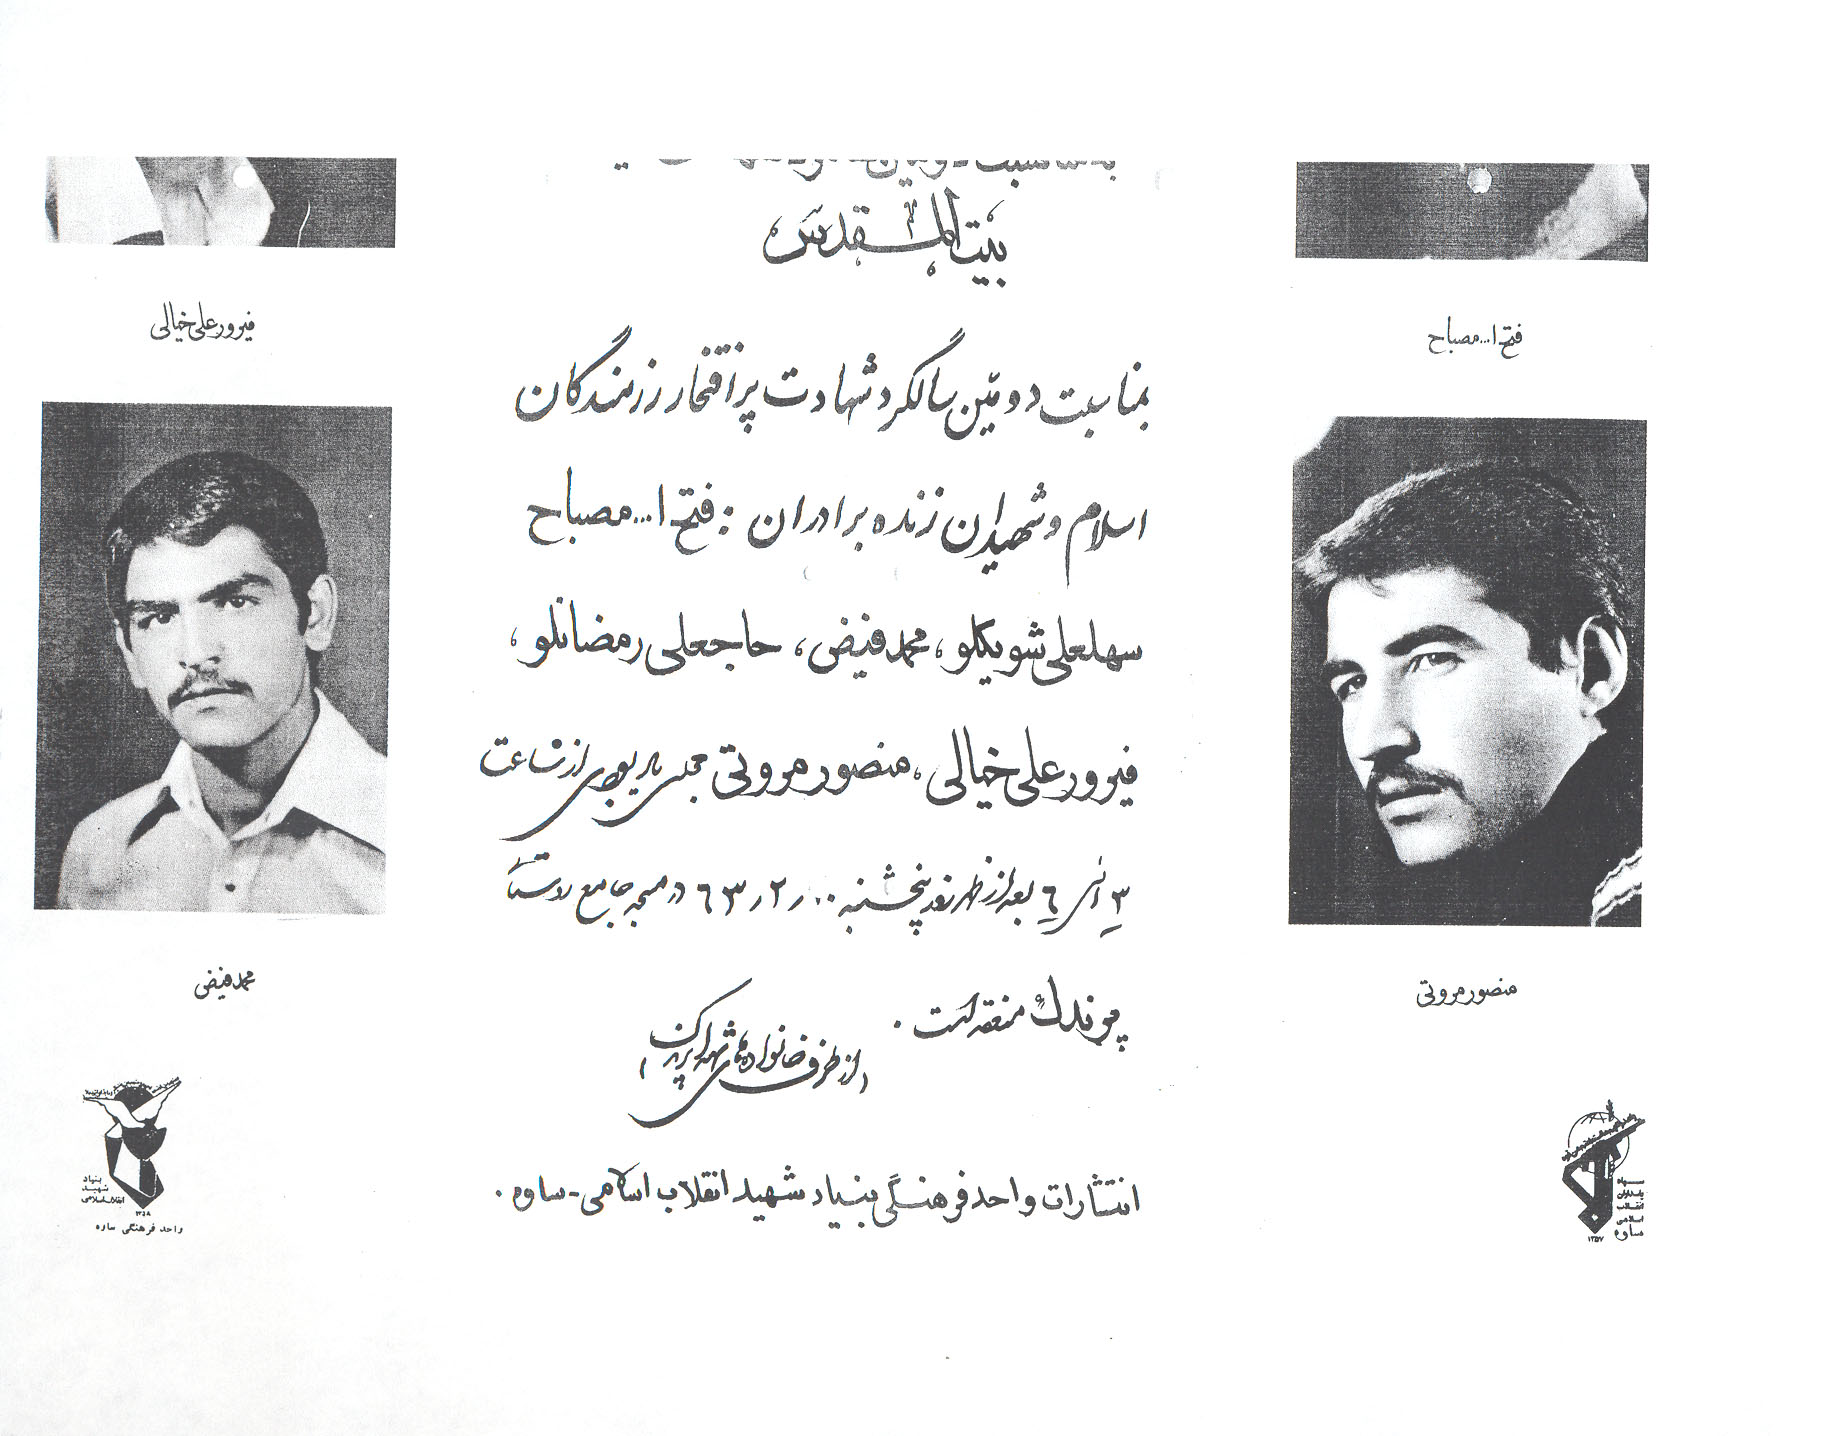 بیت المقدس
فیروز علی خیالی
فتح ا... مصباح
بمناسبت دومین سالگرد شهادت پرافتخار رزمندگان
اسلام و شهیدان زنده برادران : فتح ا... مصباح
سهلعلی شویکلو، محمد فیض، حاجعلی رمضانلو،
فیروز علی خیالی، منصور مروتی مجلس یادبودی از ساعت
۳ الی ۶ بعد از ظهر روز پنجشنبه ۶۳ در مسجد جامع روستای
منعقد است.
محمد فیض
منصور مروتی
(از طرف خانواده‌های شهدا)
انتشارات واحد فرهنگی بنیاد شهید انقلاب اسلامی - ساوه.
بنیاد
شهید
انقلاب اسلامی
۱۳۵۸
واحد فرهنگی ساوه
سپاه
پاسداران
انقلاب
اسلامی
ساوه
۱۳۵۷